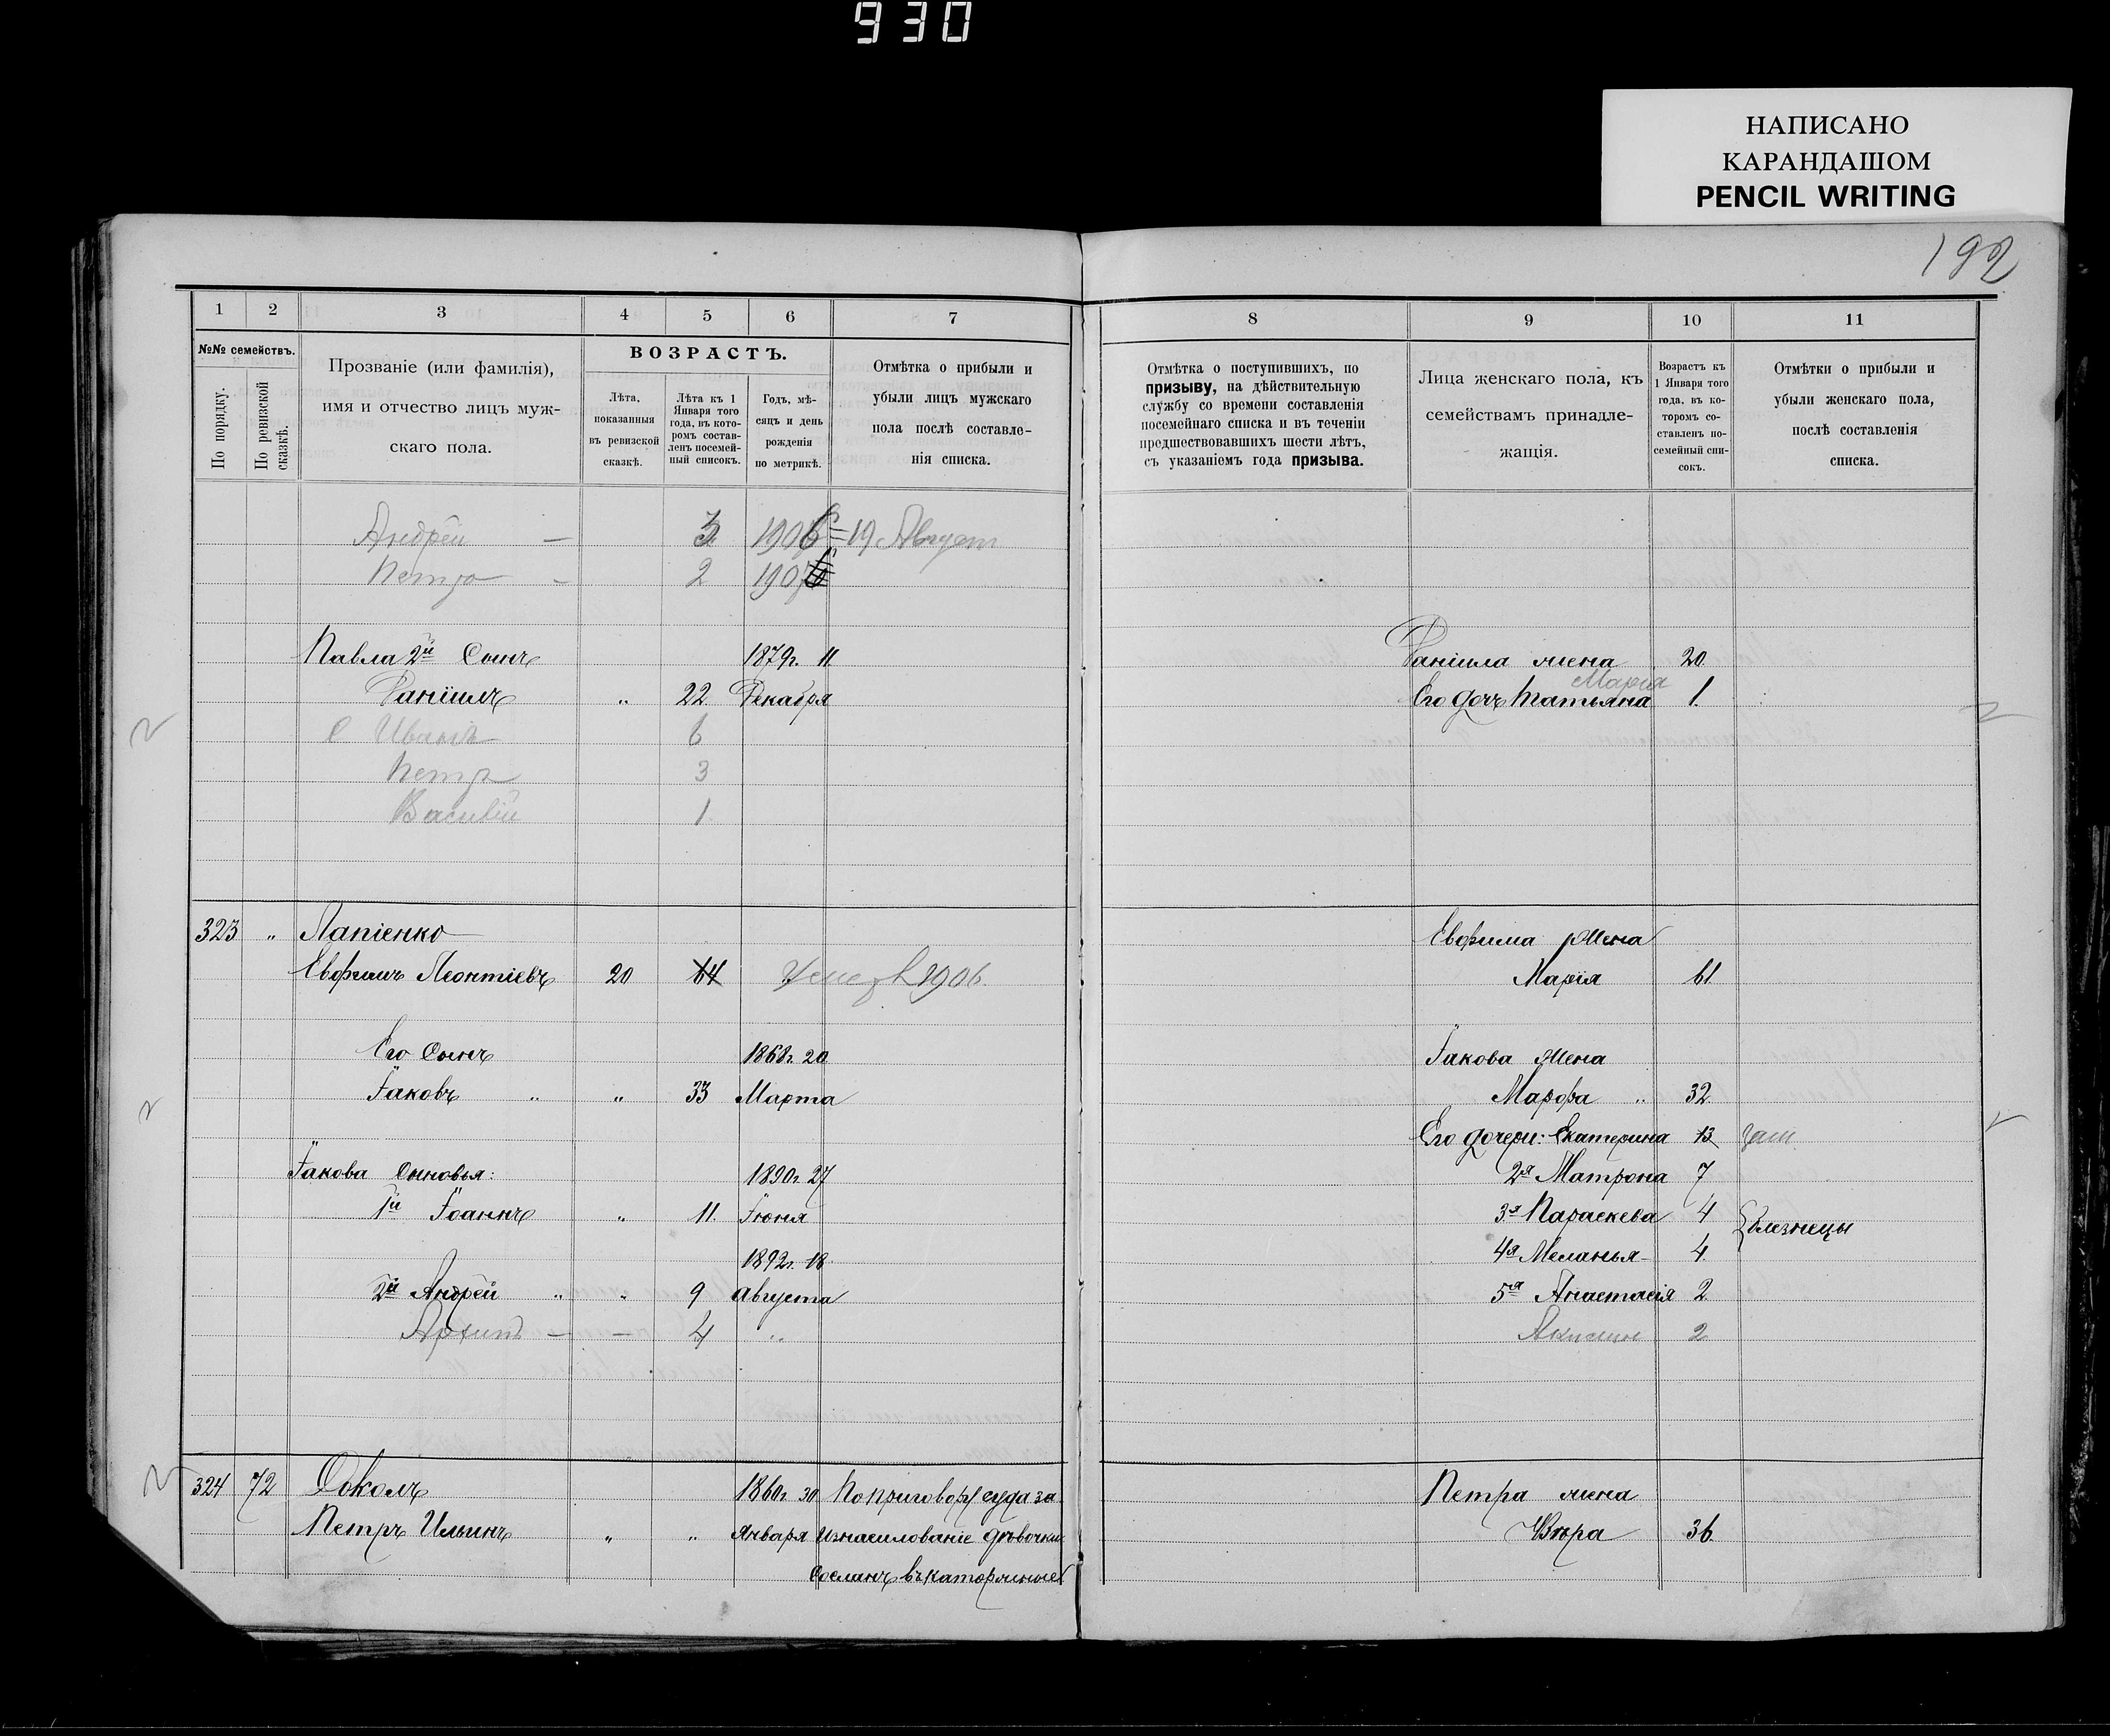 930
НАПИСАНО
КАРАНДАШОМ
PENCIL WRITING
192
1 2 3 4 5 6 7 8 9 10 11
№№ семействъ.
По порядку.
По ревизской сказкѣ.
Прозваніе (или фамилія),
имя и отчество лицъ муж-
скаго пола.
ВОЗРАСТЪ.
Лѣта,
показанныя
въ ревизской
сказкѣ.
Лѣта къ 1
Января того
года, въ кото-
ромъ состав-
ленъ посемей-
ный списокъ.
Годъ, мѣ-
сяцъ и день
рожденія
по метрикѣ.
Отмѣтка о прибыли и
убыли лицъ мужскаго
пола послѣ составле-
нія списка.
Отмѣтка о поступившихъ, по
призыву, на дѣйствительную
службу со времени составленія
посемейнаго списка и въ теченіи
предшествовавшихъ шести лѣтъ,
съ указаніемъ года призыва.
Лица женскаго пола, къ
семействамъ принадле-
жащія.
Возрастъ къ
1 Января того
года, въ ко-
торомъ со-
ставленъ по-
семейный спи-
сокъ.
Отмѣтки о прибыли и
убыли женскаго пола,
послѣ составленія
списка.
Андрей — 3 1906 = 19 Август
Петро — 2 1907
Павла 2й Сынъ 1879г. 11 Даніила жена 20
Марія
Даніилъ „ 22 Декабря Его дочь Татьяна 1.
С Иванъ 6
Петръ 3
Василій 1
323 „ Лапіенко Евфима жена
Евфимъ Леонтіевъ 20 64 Умер 1906. Марія 61
Его Сынъ 1868г. 20 Іакова жена
Іаковъ „ „ 33 Марта Марфа „ 32.
Его дочери: Екатерина 13 зам.
Іакова Сыновья: 1890г. 27 2я Матрона 7
1й Іоаннъ „ 11. Іюня 3я Параскева 4 близнецы
1892г. 18 4я Меланья 4.
2й Андрей „ „ 9 Августа 5я Анастасія 2
Архипъ — — 4 „ 2
324 72 Соколъ 1860г. 30 По приговору суда за Петра жена
Петръ Ильинъ „ „ Января изнасилованіе дѣвочки Вѣра 36.
Сосланъ въ каторжные